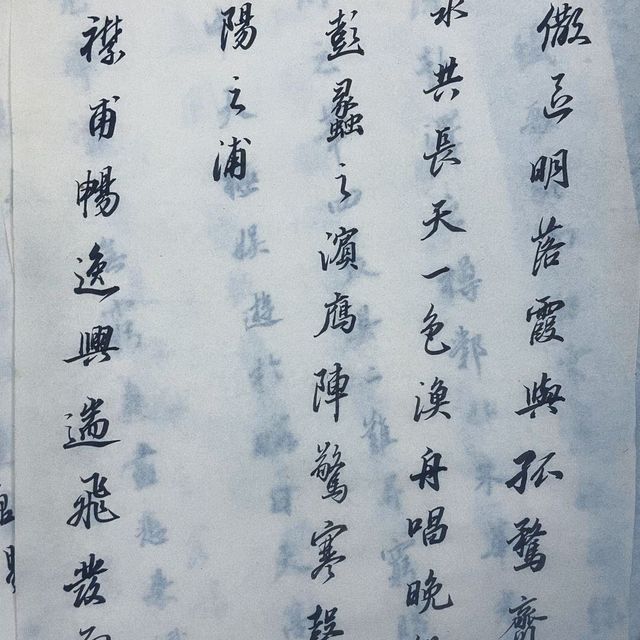 徹區明落霞與孤鶩齊
水共長天一色漁舟唱晚
彭蠡之濱鴈陣驚寒聲
陽之浦
襟甫暢逸興遄飛發